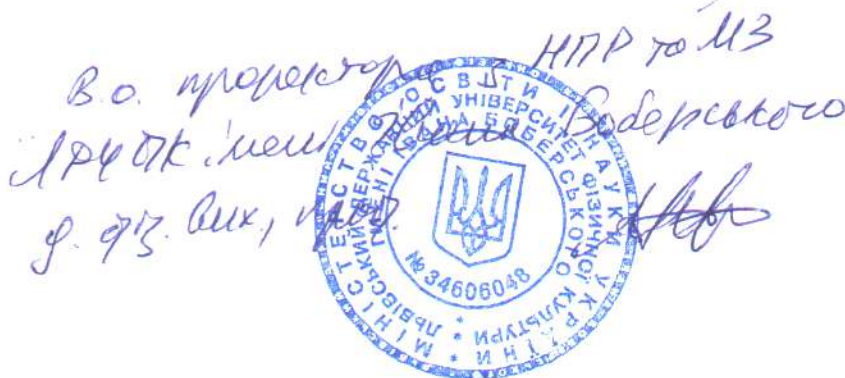 В.о. проректора з НПР та МЗ
ЛДУФК імені Івана Боберського
д. фіз. вих., проф.
МІНІСТЕРСТВО ОСВІТИ І НАУКИ УКРАЇНИ *
ЛЬВІВСЬКИЙ ДЕРЖАВНИЙ УНІВЕРСИТЕТ ФІЗИЧНОЇ КУЛЬТУРИ *
ІМЕНІ ІВАНА БОБЕРСЬКОГО
№ 34606048